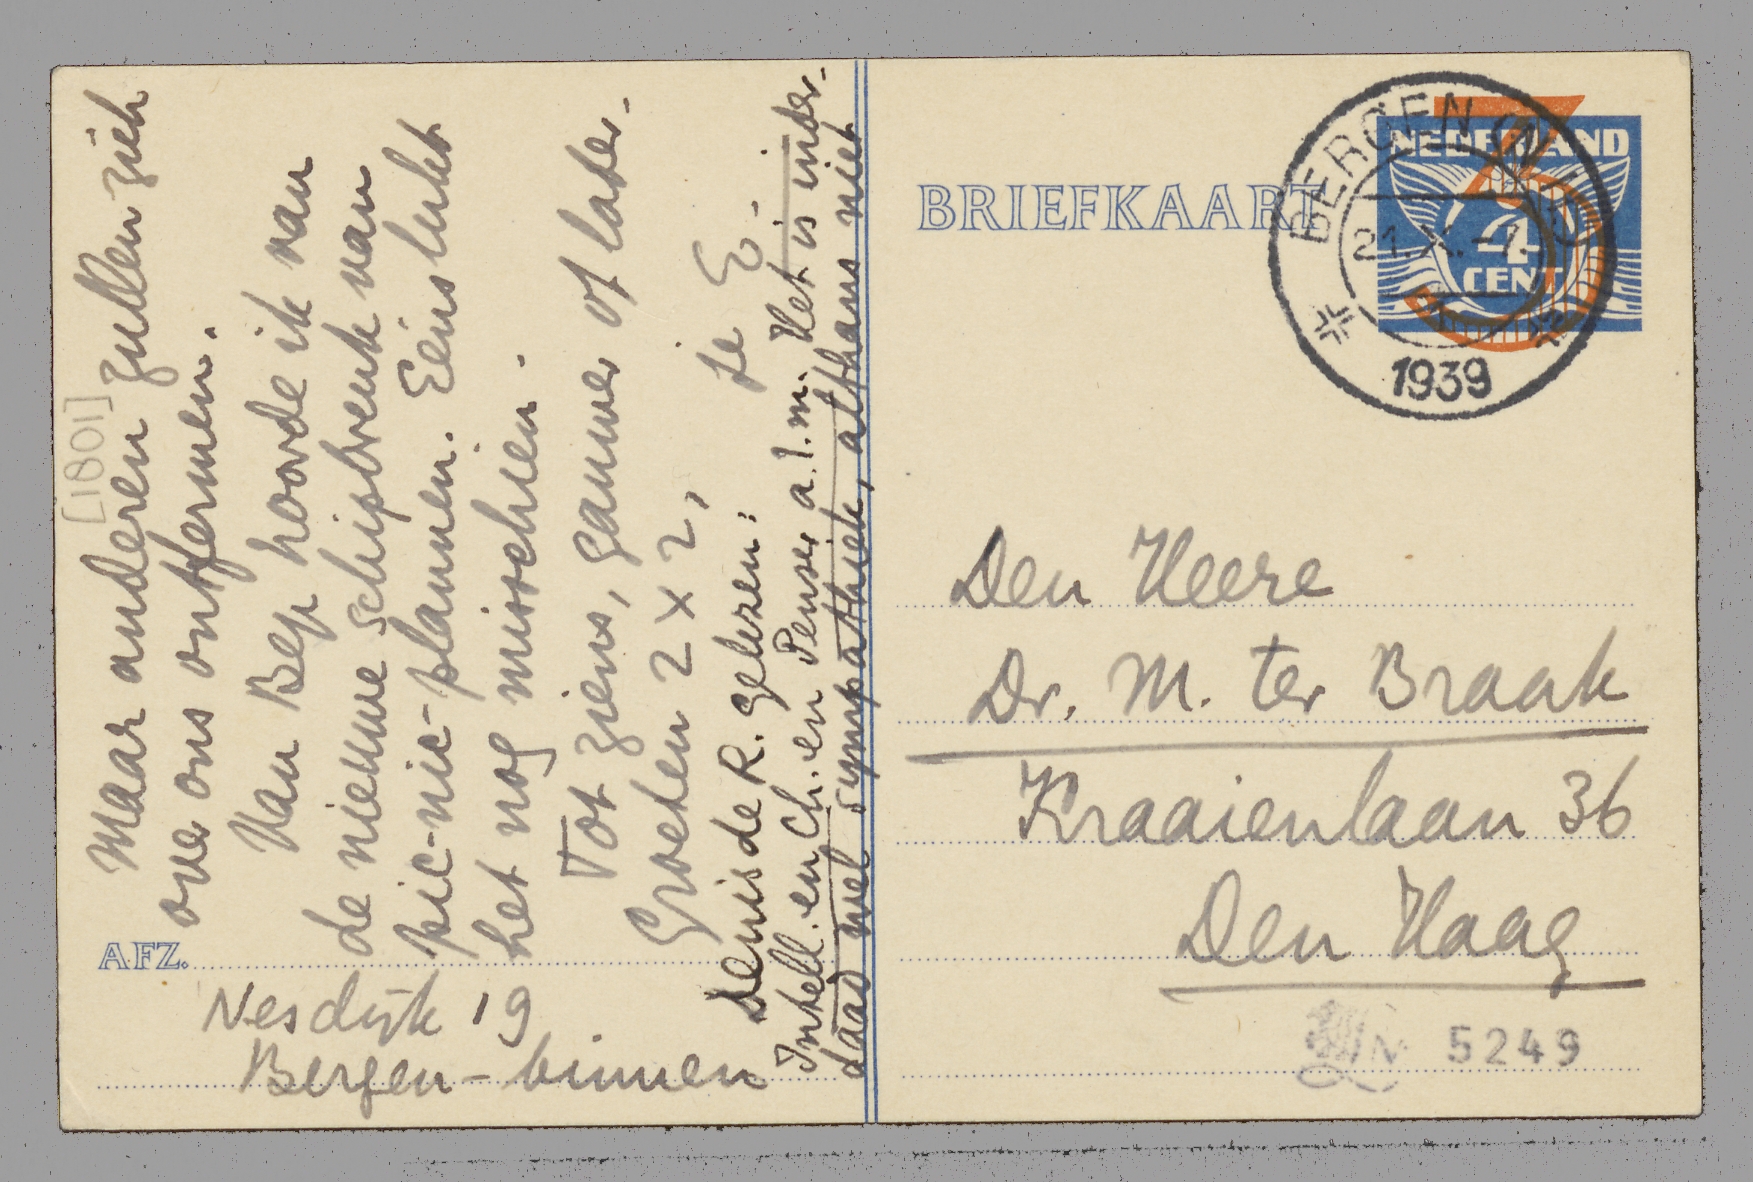 [1801]
Maar anderen zullen zich
over ons ontfermen.
Van Bep hoorde ik van
de nieuwe schipbreuk van
pic-nic-plannen. Eéns lukt
het nog misschien.
Tot ziens, gauwer of later.
Groeten 2 x 2,
je E.
Denis de R. gelezen:
Intell. en Ch. en Penser a.l.m. Het is inder-
daad wel sympathiek, althans niet
AFZ.
Nesdijk 19
Bergen-binnen
BRIEFKAART
NEDERLAND
4
CENT
3
BERGEN (N.H)
21.X.-
1939
Den Heere
Dr. M. ter Braak
Kraaienlaan 36
Den Haag
5249